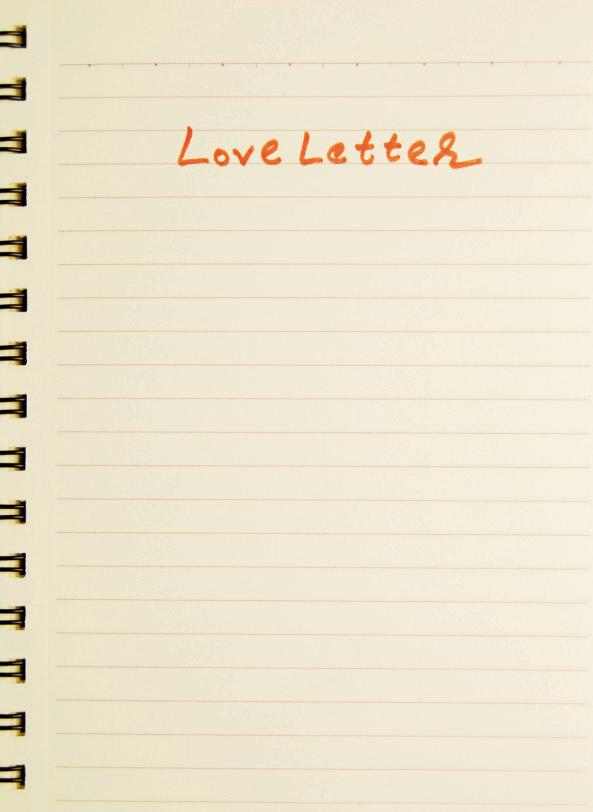 Love Letter